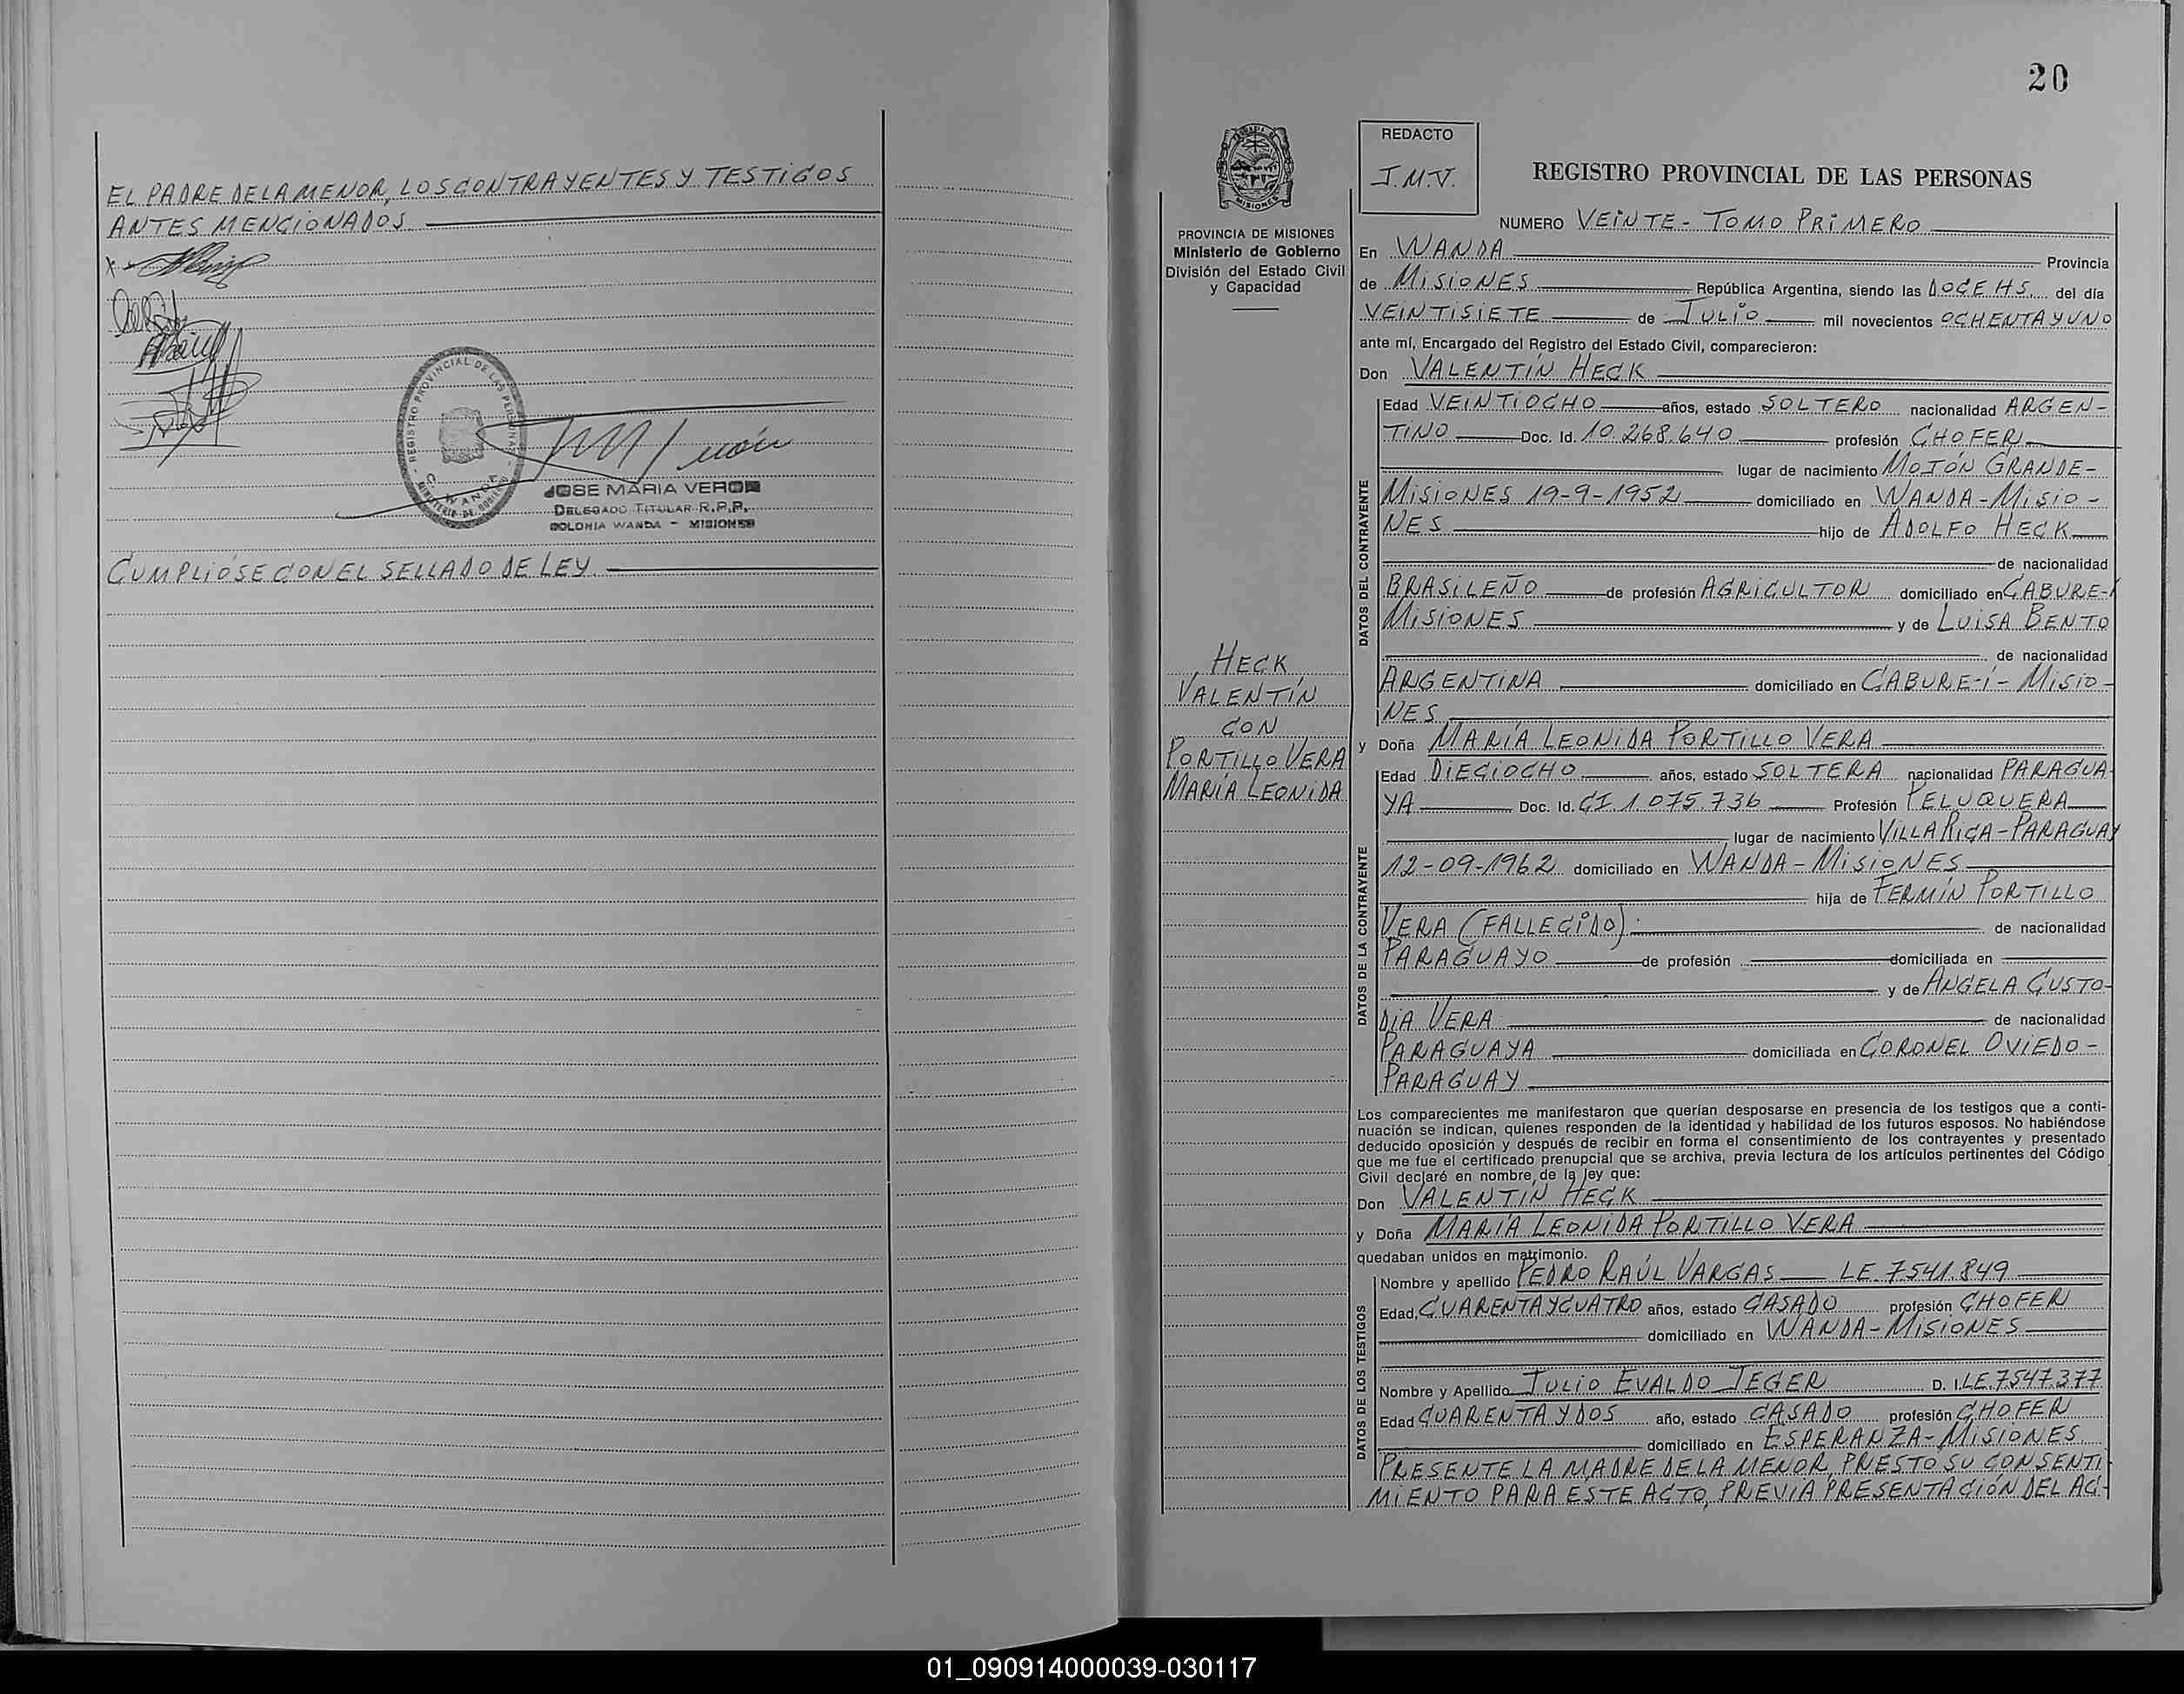 EL PADRE DE LA MENOR, LOS CONTRAYENTES Y TESTIGOS
ANTES MENCIONADOS.
REGISTRO PROVINCIAL DE LAS PERSONAS
C. WANDA
MINISTERIO DE GOBIERNO
JOSE MARIA VERON
DELEGADO TITULAR R.P.P.
COLONIA WANDA - MISIONES
CUMPLIÓSE CON EL SELLADO DE LEY.
20
MISIONES
PROVINCIA DE MISIONES
Ministerio de Gobierno
División del Estado Civil
y Capacidad
HECK
VALENTÍN
CON
PORTILLO VERA
MARÍA LEONIDA
REDACTO
J.M.V.
REGISTRO PROVINCIAL DE LAS PERSONAS
NUMERO VEINTE - TOMO PRIMERO
En WANDA Provincia
de MISIONES República Argentina, siendo las DOCE HS. del día
VEINTISIETE de JULIO mil novecientos OCHENTA Y UNO
ante mí, Encargado del Registro del Estado Civil, comparecieron:
Don VALENTÍN HECK
DATOS DEL CONTRAYENTE
Edad VEINTIOCHO años, estado SOLTERO nacionalidad ARGEN-
TINO Doc. Id. 10.268.640 profesión CHOFER
lugar de nacimiento MOJÓN GRANDE-
MISIONES 19-9-1952 domiciliado en WANDA-MISIO-
NES hijo de ADOLFO HECK
de nacionalidad
BRASILEÑO de profesión AGRICULTOR domiciliado en CABURE-Í
MISIONES y de LUISA BENTO
de nacionalidad
ARGENTINA domiciliado en CABURE-Í - MISIO-
NES
y Doña MARÍA LEONIDA PORTILLO VERA
DATOS DE LA CONTRAYENTE
Edad DIECIOCHO años, estado SOLTERA nacionalidad PARAGUA-
YA Doc. Id. CI. 1.075.736 Profesión PELUQUERA
lugar de nacimiento VILLA RICA-PARAGUAY
12-09-1962 domiciliado en WANDA-MISIONES
hija de FERMÍN PORTILLO
VERA (FALLECIDO) de nacionalidad
PARAGUAYO de profesión domiciliada en
y de ANGELA CUSTO-
DIA VERA de nacionalidad
PARAGUAYA domiciliada en CORONEL OVIEDO-
PARAGUAY
Los comparecientes me manifestaron que querían desposarse en presencia de los testigos que a conti-
nuación se indican, quienes responden de la identidad y habilidad de los futuros esposos. No habiéndose
deducido oposición y después de recibir en forma el consentimiento de los contrayentes y presentado
que me fue el certificado prenupcial que se archiva, previa lectura de los artículos pertinentes del Código
Civil declaré en nombre de la ley que:
Don VALENTÍN HECK
y Doña MARÍA LEONIDA PORTILLO VERA
quedaban unidos en matrimonio.
DATOS DE LOS TESTIGOS
Nombre y apellido PEDRO RAÚL VARGAS LE. 7541.849
Edad, CUARENTA Y CUATRO años, estado CASADO profesión CHOFER
domiciliado en WANDA-MISIONES
Nombre y Apellido JULIO EVALDO JEGER D. I. LE.7547.377
Edad CUARENTA Y DOS año, estado CASADO profesión CHOFER
domiciliado en ESPERANZA-MISIONES
PRESENTE LA MADRE DE LA MENOR, PRESTO SU CONSENTI-
MIENTO PARA ESTE ACTO, PREVIA PRESENTACIÓN DEL AC-
01_090914000039-030117